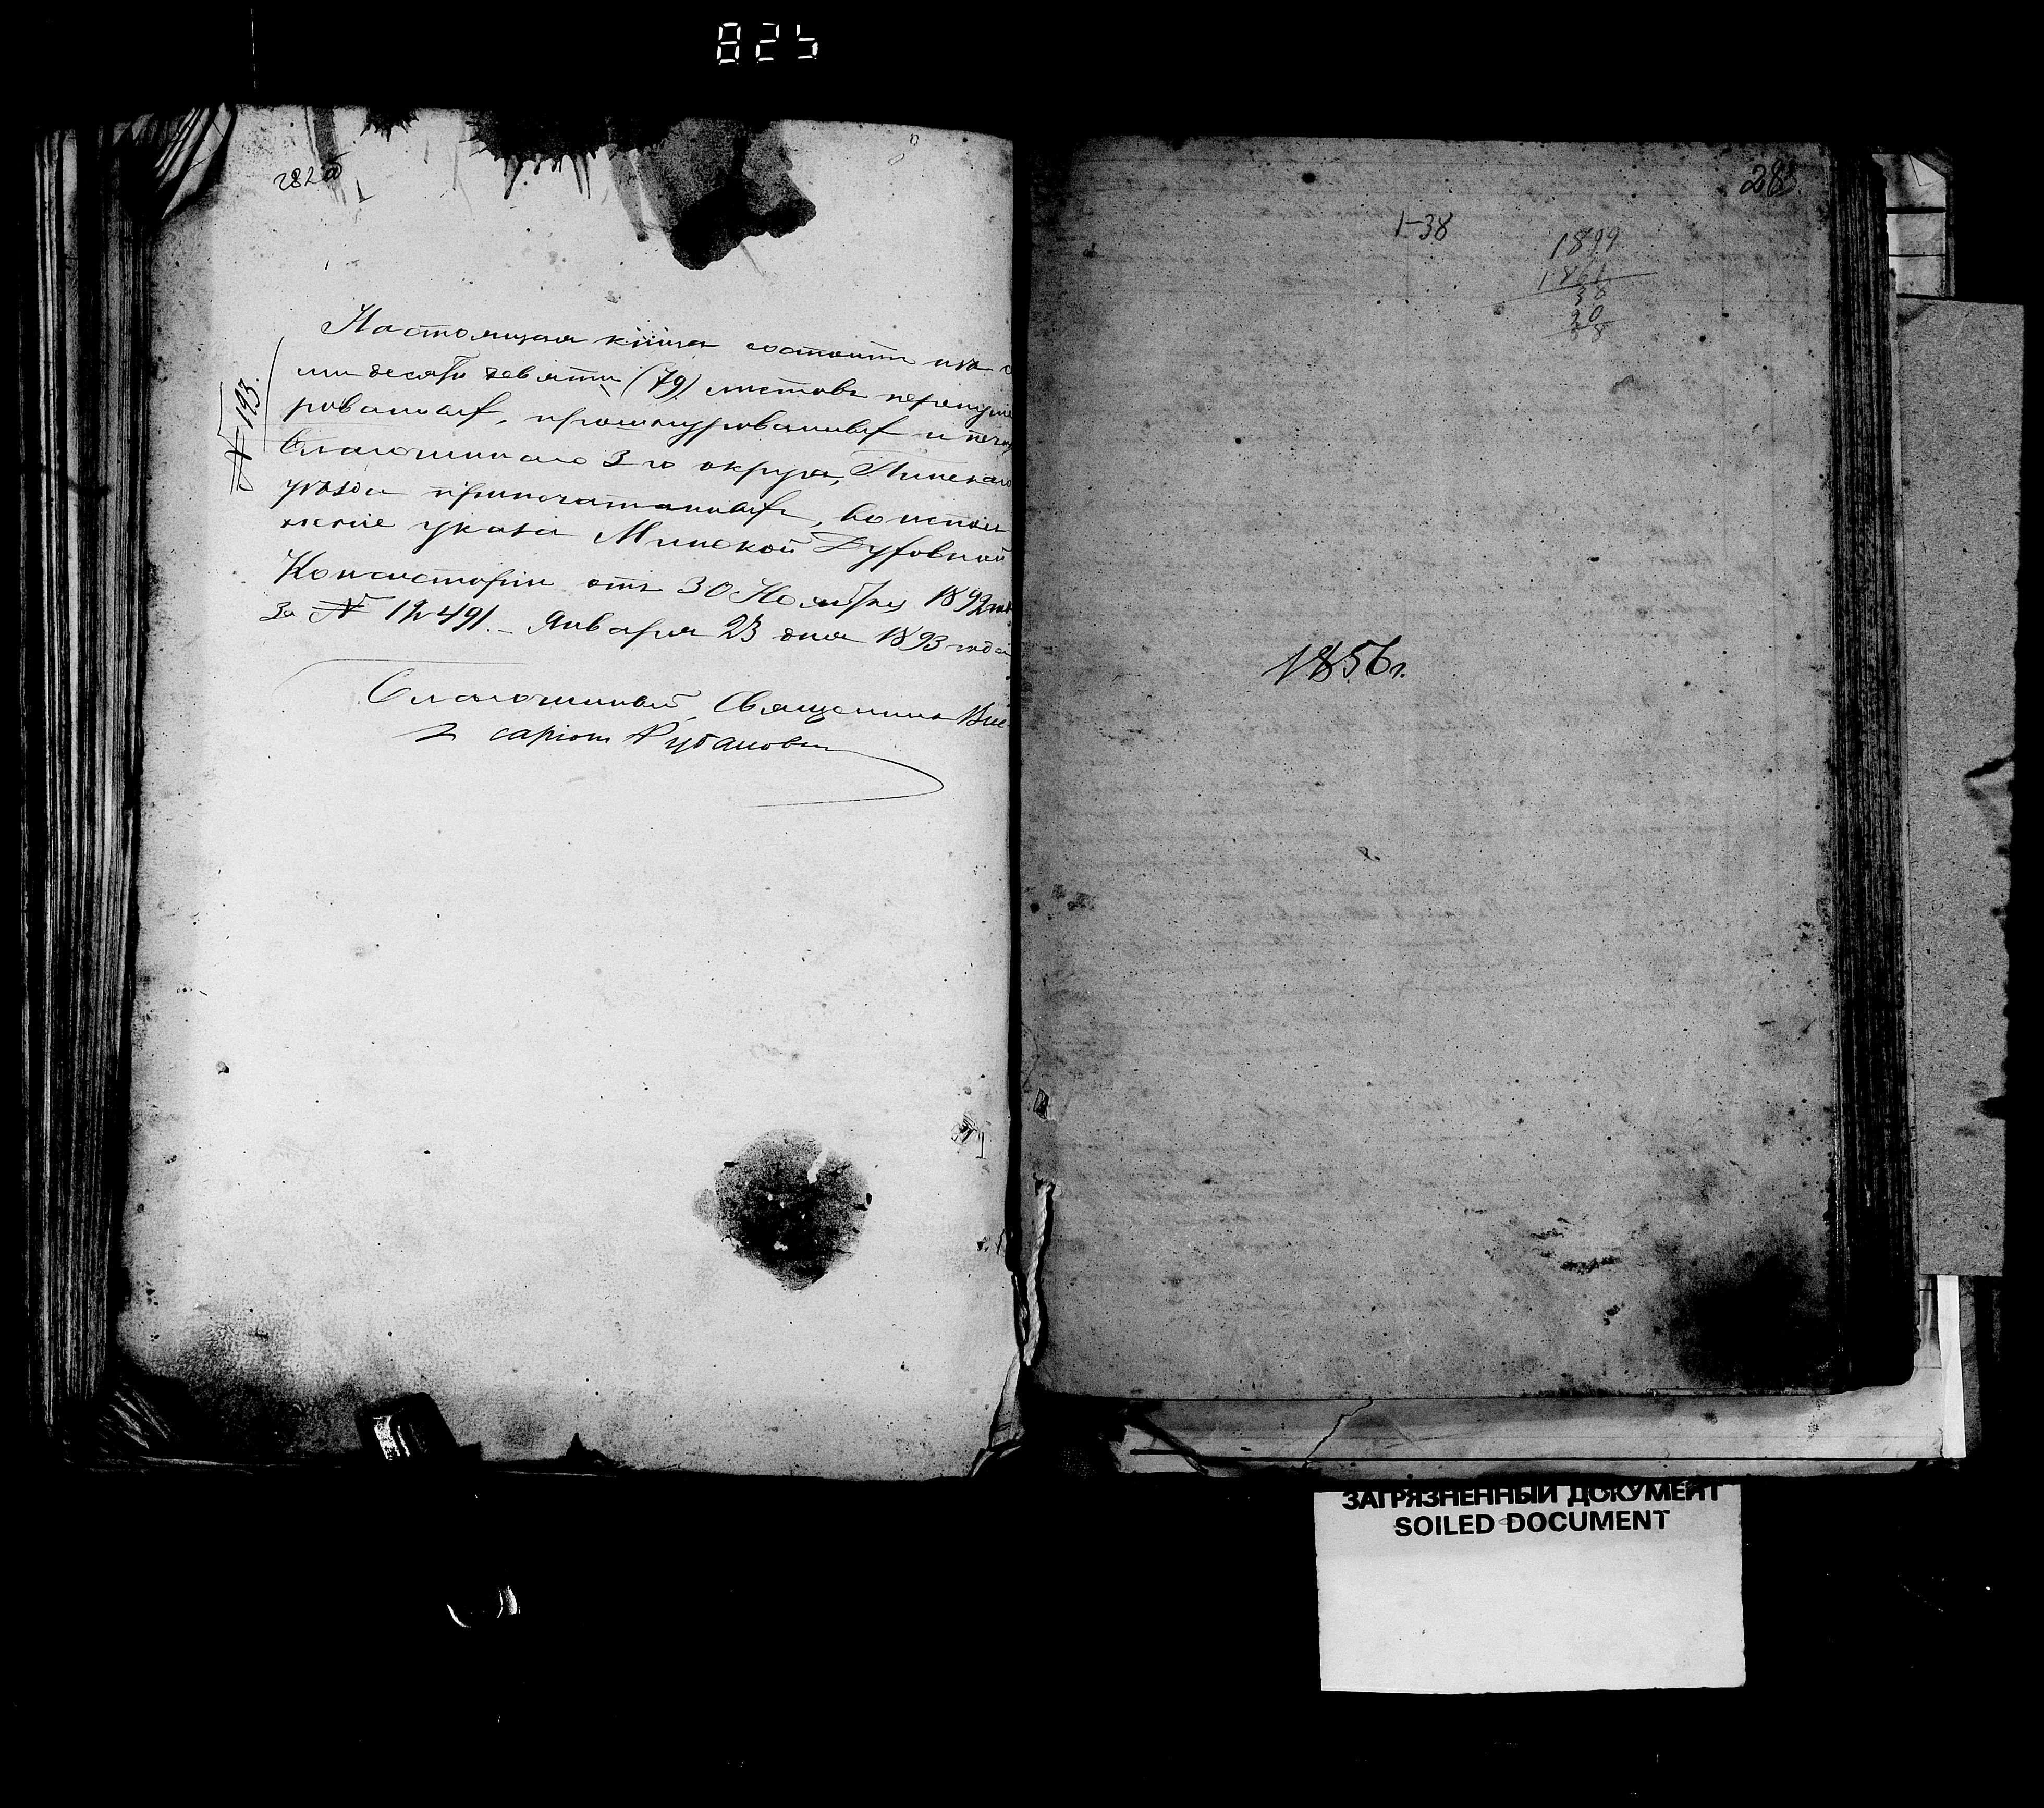 825
282об
№ 193.
Настоящая книга состоитъ изъ с
ми десяти девяти (79) листовъ перенуме
рованныхъ, прошнурованныхъ и печат
Благочиннаго 3го округа, Пинскаго
уѣзда припечатанныхъ, во испол
неніе указа Минской Духовной
Консисторіи отъ 30 Ноября 1892 года
за № 12491. Января 23 дня 1893 года
Благочинный, Священникъ Вис-
саріонъ Рубановичъ
28
1-38
1899
1861
38
20
38
1856г.
ЗАГРЯЗНЕННЫЙ ДОКУМЕНТ
SOILED DOCUMENT